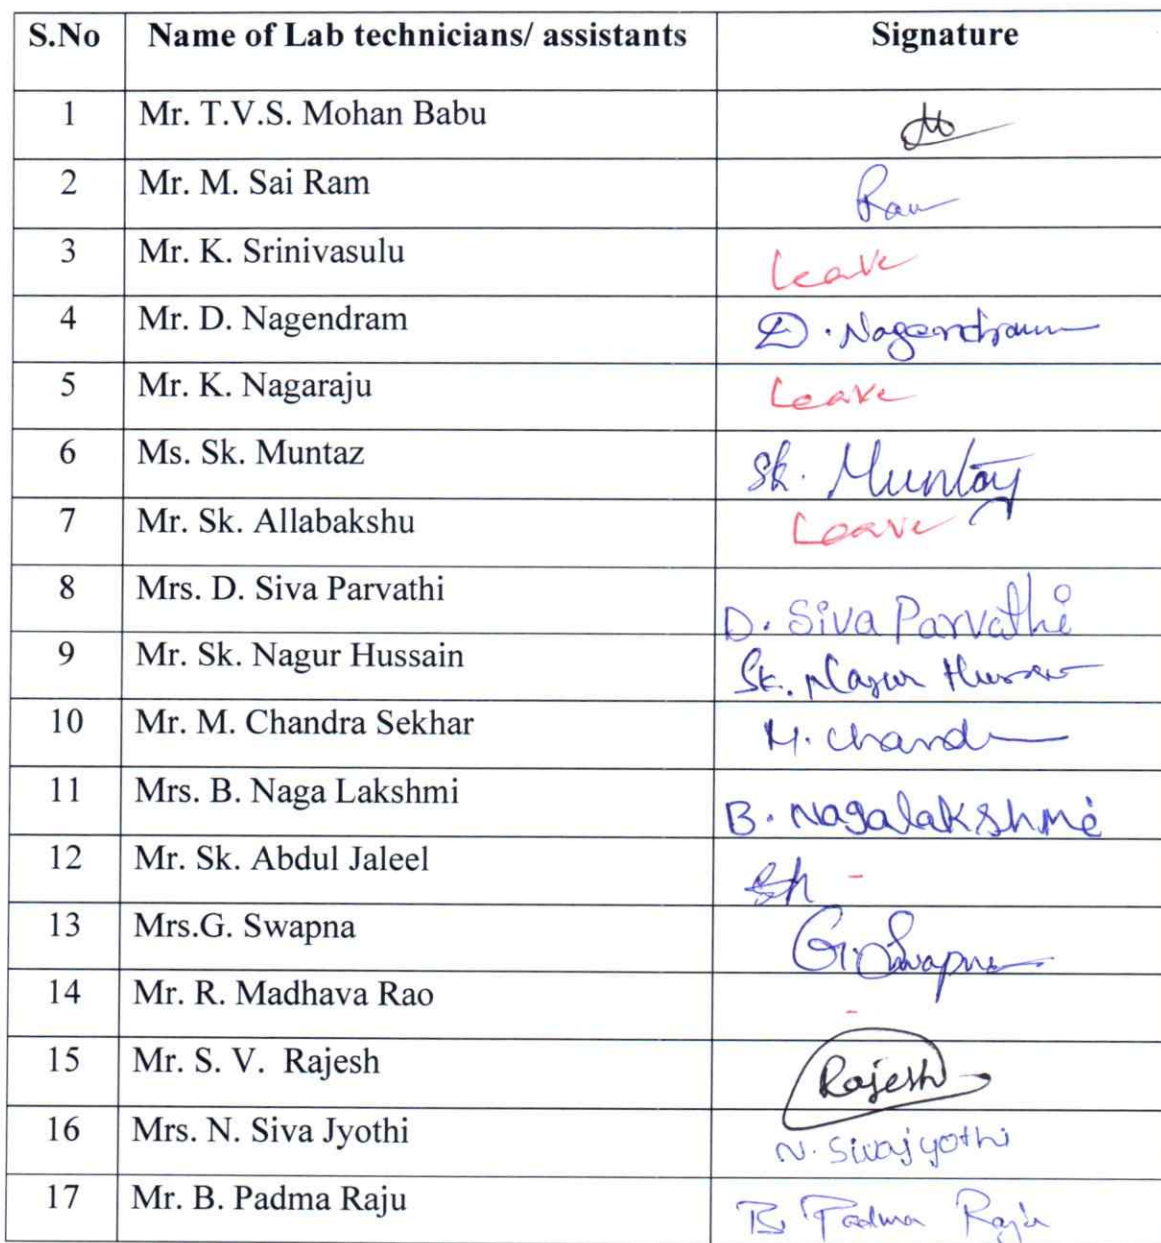 S.No Name of Lab technicians/ assistants Signature
1 Mr. T.V.S. Mohan Babu
2 Mr. M. Sai Ram Ram
3 Mr. K. Srinivasulu Leave
4 Mr. D. Nagendram D. Nagendram
5 Mr. K. Nagaraju Leave
6 Ms. Sk. Muntaz Sk. Muntaz
7 Mr. Sk. Allabakshu Leave
8 Mrs. D. Siva Parvathi D. Siva Parvathi
9 Mr. Sk. Nagur Hussain Sk. Nagur
10 Mr. M. Chandra Sekhar M. Chand
11 Mrs. B. Naga Lakshmi B. Nagalakshmi
12 Mr. Sk. Abdul Jaleel Sk -
13 Mrs.G. Swapna G. Swapna
14 Mr. R. Madhava Rao -
15 Mr. S. V. Rajesh Rajesh
16 Mrs. N. Siva Jyothi N. Sivajyothi
17 Mr. B. Padma Raju B. Padma Raju